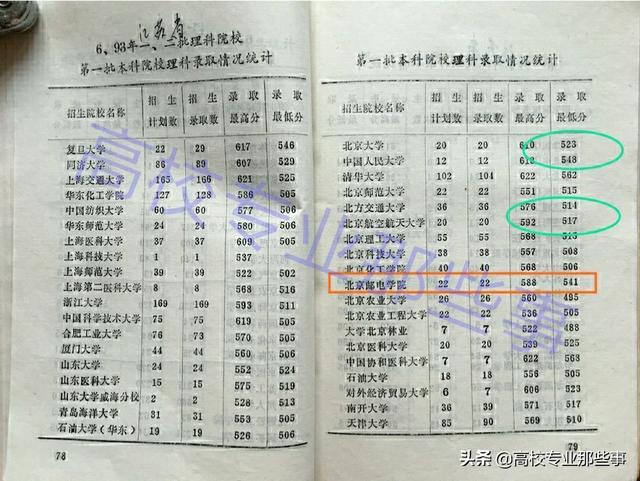 江苏省
6、93年一、二批理科院校
第一批本科院校理科录取情况统计
招生院校名称 招生计划数 招生录取数 录取最高分 录取最低分
复旦大学 22 29 617 546
同济大学 86 89 607 529
上海交通大学 165 166 621 525
华东化工学院 127 128 586 505
中国纺织大学 60 60 580 506
华东师范大学 24 24 577 506
上海医科大学 37 37 609 505
上海科技大学 1 1 538 538
上海师范大学 39 39 522
上海第二医科大学 8 8 568 516
浙江大学 169 169 593 511
中国科学技术大学 75 75 619 505
合肥工业大学 76 73 570 505
厦门大学 44 44 560 505
山东大学 24 24 552 524
山东医科大学 15 15 575 519
山东大学威海分校 2 2 528 513
青岛海洋大学 31 31 553 505
石油大学(华东) 19 19 526 506
78
第一批本科院校理科录取情况统计
招生院校名称 招生计划数 招生录取数 录取最高分 录取最低分
北京大学 20 20 610 523
中国人民大学 12 12 612 548
清华大学 102 104 622 562
北京师范大学 22 22 551 515
北方交通大学 36 36 576 514
北京航空航天大学 20 20 592 517
北京理工大学 55 55 568 515
北京科技大学 38 38 557 508
北京化工学院 40 40 568 506
北京邮电学院 22 22 588 541
北京农业大学 26 26 560 495
北京农业工程大学 22 22 536 505
大学北京林业 7 7 522 488
北京医科大学 20 20 539 525
中国协和医科大学 7 7 632 568
石油大学 18 18 556 505
对外经济贸易大学 6 7 606 523
南开大学 36 39 571 517
天津大学 85 90 569 510
79
高校专业那些事
头条 @高校专业那些事